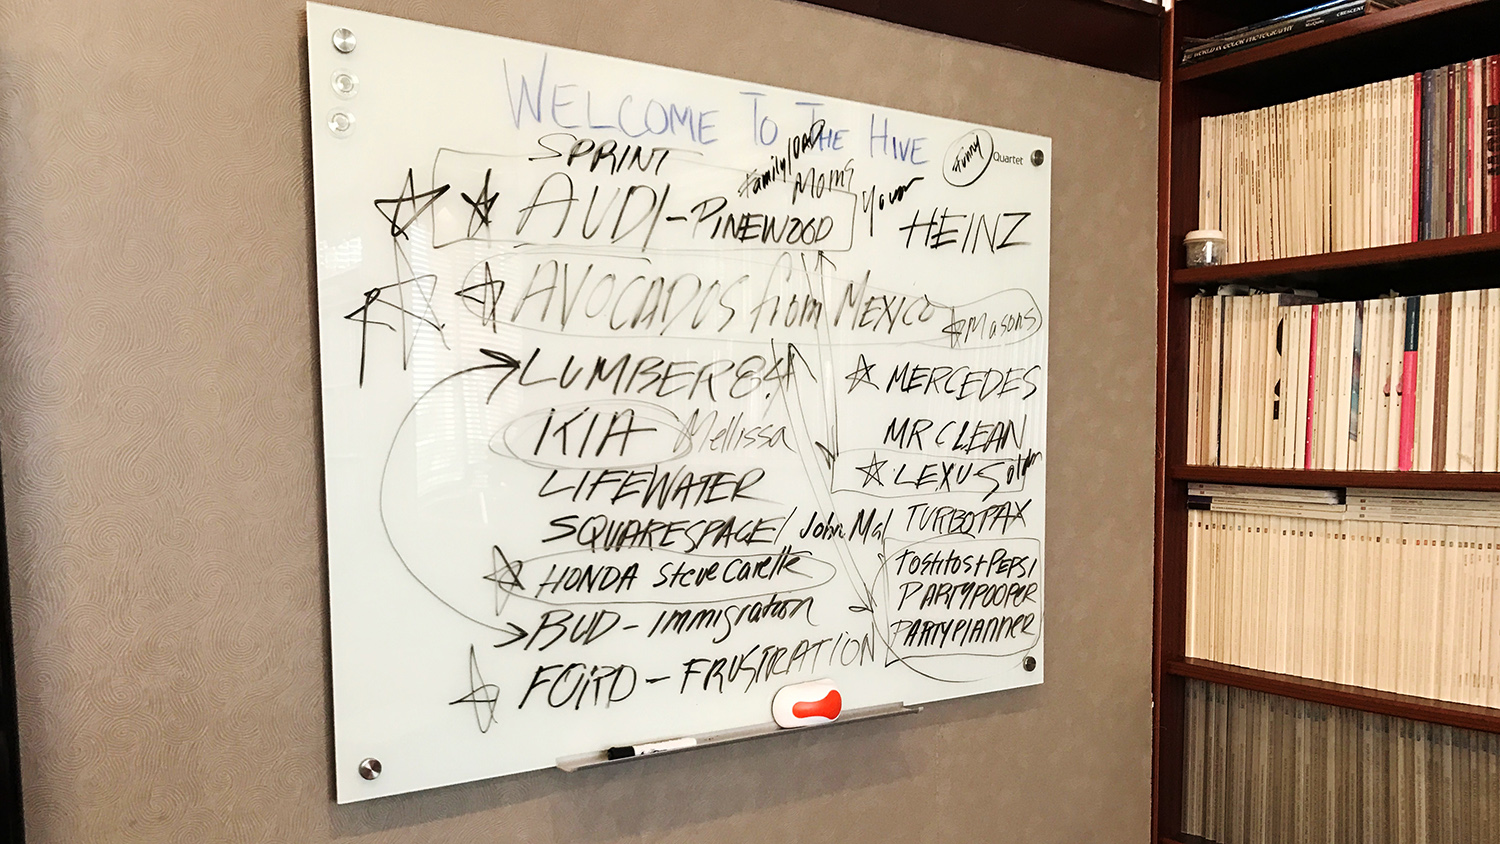 WELCOME TO THE HIVE
funny
Quartet
SPRINT
Family/DAD
MOMS
AUDI - PINEWOOD
HEINZ
AVOCADOS from MEXICO
Masons
LUMBER 84
MERCEDES
KIA Mellissa
MR CLEAN
LIFEWATER
LEXUS
SQUARESPACE/ John Mal
TURBOTAX
HONDA Steve Carelle
TOSTITOS + PEPSI
BUD - Immigration
PARTYPOOPER
PARTYPLANNER
FORD - FRUSTRATION
WORLD IN COLOR PHOTOGRAPHY
CRESCENT